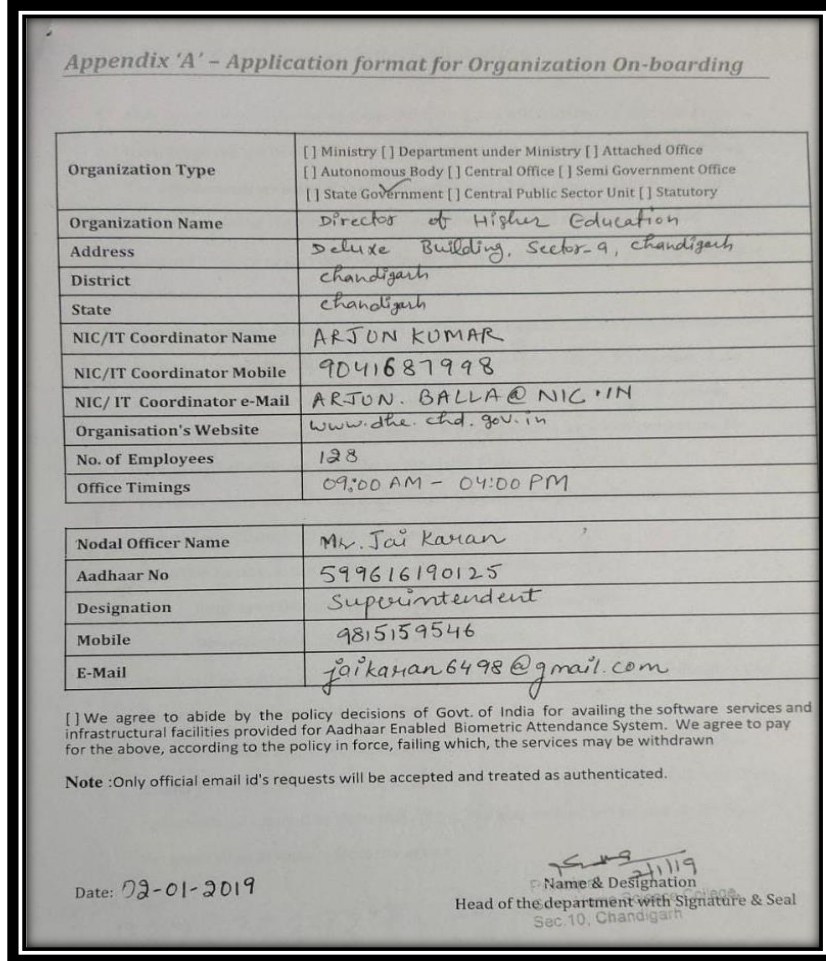 Appendix 'A' – Application format for Organization On-boarding
Organization Type
[ ] Ministry [ ] Department under Ministry [ ] Attached Office
[ ] Autonomous Body [ ] Central Office [ ] Semi Government Office
[ ] State Government [ ] Central Public Sector Unit [ ] Statutory
Organization Name Director of Higher Education
Address Deluxe Building, Sector-9, Chandigarh
District Chandigarh
State Chandigarh
NIC/IT Coordinator Name ARJUN KUMAR
NIC/IT Coordinator Mobile 9041687998
NIC/ IT Coordinator e-Mail ARJUN.BALLA@NIC.IN
Organisation's Website www.dhe.chd.gov.in
No. of Employees 128
Office Timings 09:00 AM - 04:00 PM
Nodal Officer Name Mr. Jai Karan
Aadhaar No 599616190125
Designation Superintendent
Mobile 9815159546
E-Mail jaikaran6498@gmail.com
[ ] We agree to abide by the policy decisions of Govt. of India for availing the software services and
infrastructural facilities provided for Aadhaar Enabled Biometric Attendance System. We agree to pay
for the above, according to the policy in force, failing which, the services may be withdrawn
Note :Only official email id's requests will be accepted and treated as authenticated.
2/1/19
Date: 02-01-2019
Name & Designation
Head of the department with Signature & Seal
Sec.10, Chandigarh